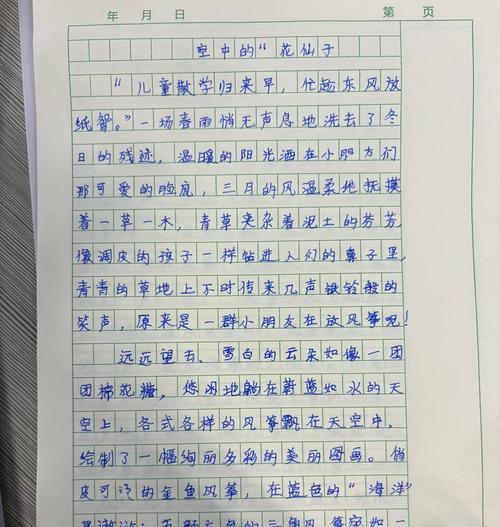 年 月 日 第 页
空中的“花仙子
“儿童散学归来早,忙趁东风放
纸鸢。”一场春雨悄无声息地洗去了冬
日的残迹,温暖的阳光洒在小朋友们
那可爱的脸庞,三月的风温柔地抚摸
着一草一木,青草夹杂着泥土的芬芳,
像调皮的孩子一样钻进人们的鼻子里,
青青的草地上不时传来几声银铃般的
笑声,原来是一群小朋友在放风筝呢!
远远望去、雪白的云朵如像一团
团棉花糖,悠闲地躺在蔚蓝如水的天
空上,各式各样的风筝飘在天空中,
绘制了一幅绚丽多彩的美丽图画。俏
皮可的金鱼风筝,在蓝色的“海洋”